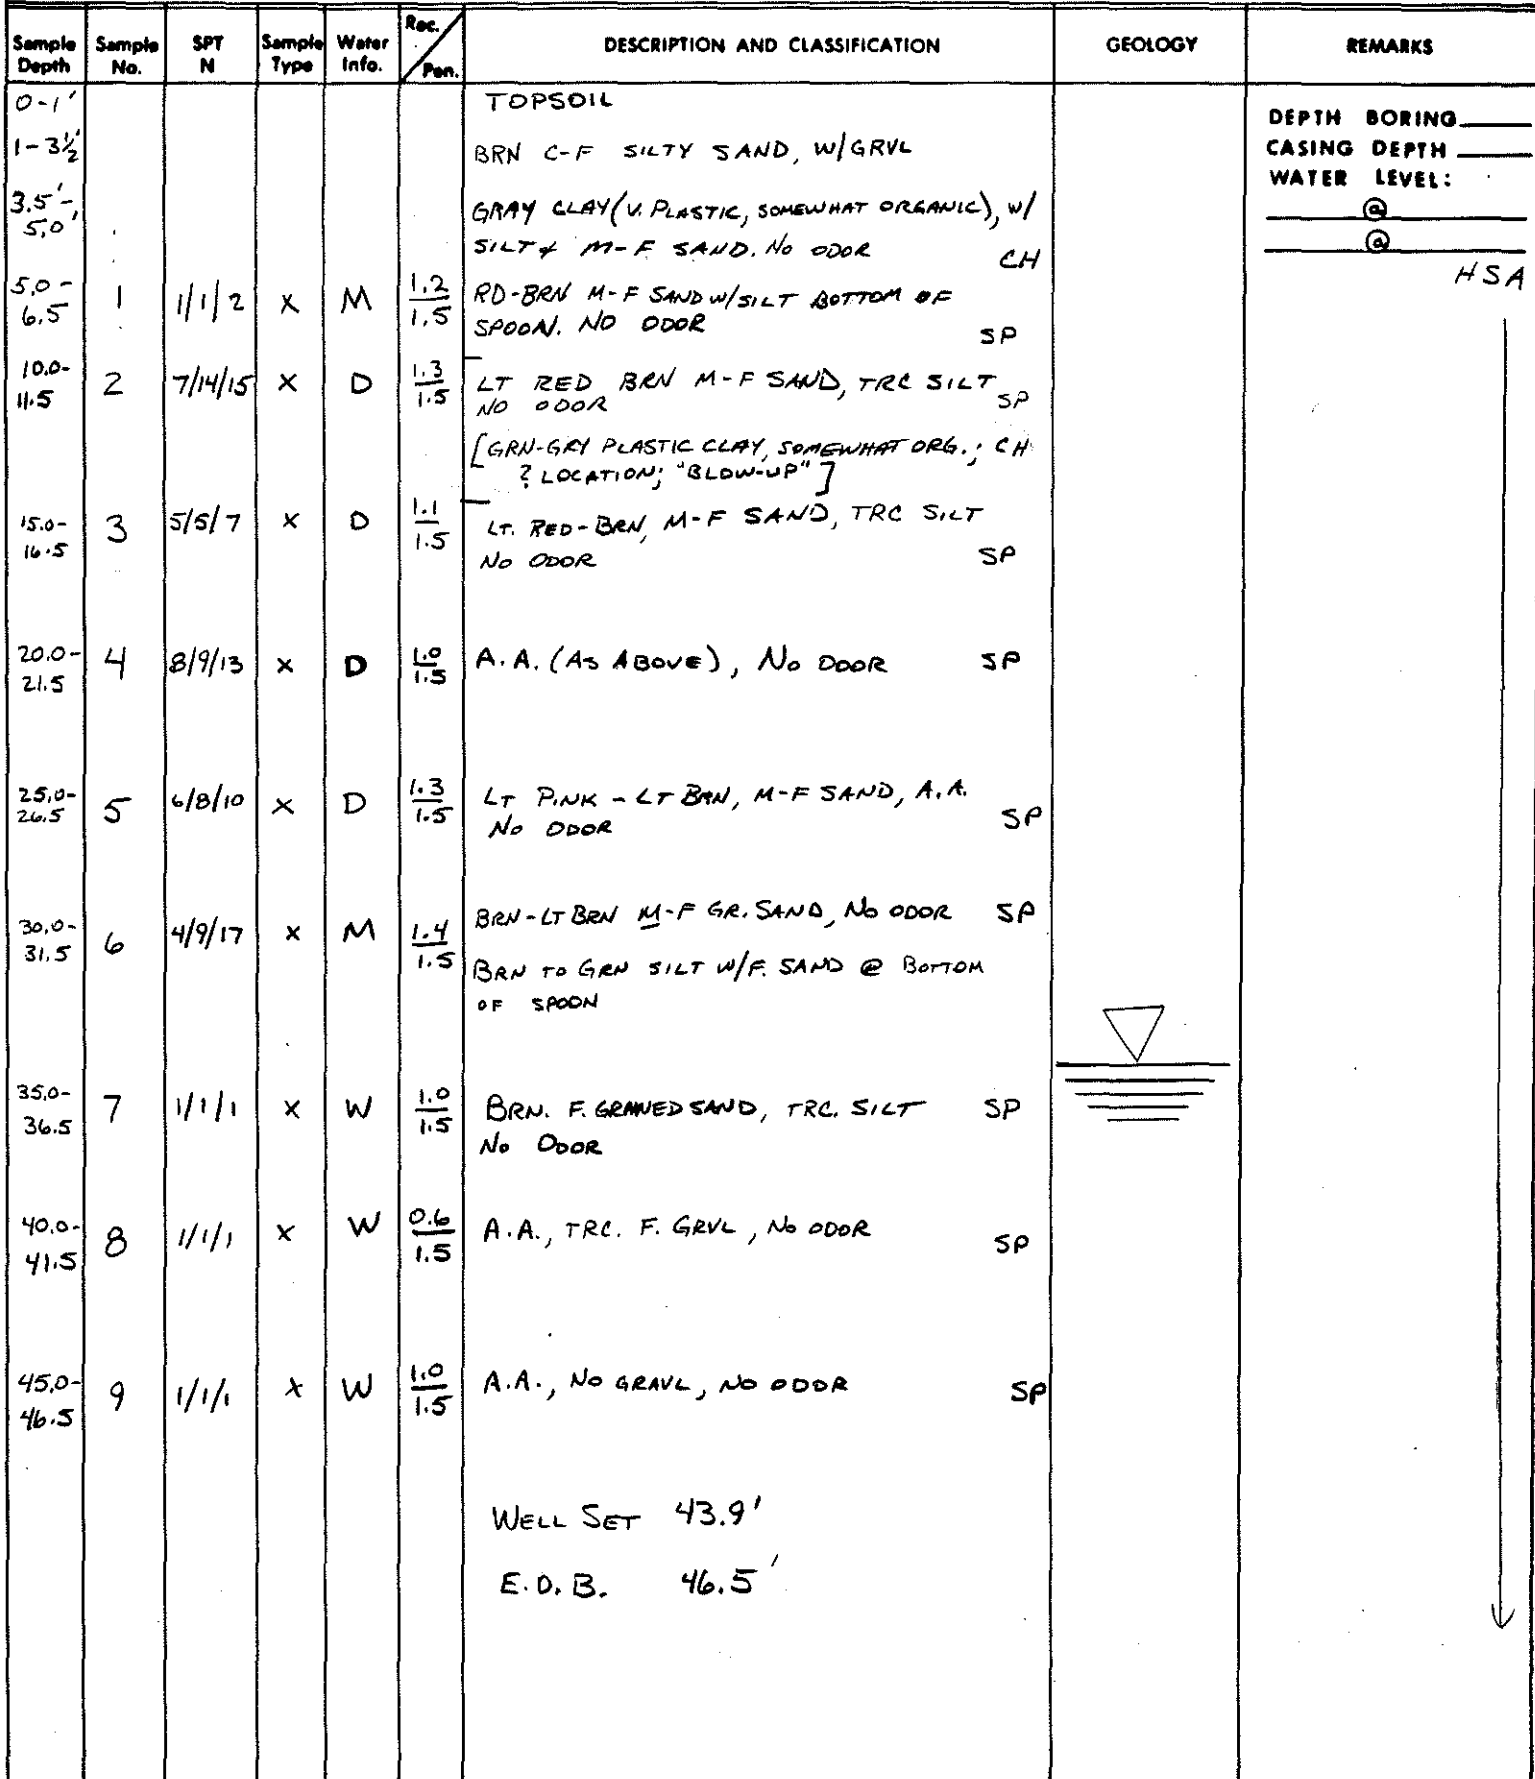 Sample Depth Sample No. SPT N Sample Type Water Info. Rec. / Pen. DESCRIPTION AND CLASSIFICATION GEOLOGY REMARKS
0-1' TOPSOIL
DEPTH BORING
1-3½' BRN C-F SILTY SAND, W/GRVL
CASING DEPTH
WATER LEVEL:
@
@
3.5'- 5.0' GRAY CLAY (V. PLASTIC, SOMEWHAT ORGANIC), W/
SILT & M-F SAND. NO ODOR CH
HSA
5.0- 6.5 1 1/1/2 X M 1.2/1.5 RD-BRN M-F SAND W/SILT BOTTOM OF
SPOON. NO ODOR SP
10.0- 11.5 2 7/14/15 X D 1.3/1.5 LT RED BRN M-F SAND, TRC SILT
NO ODOR SP
[GRN-GRY PLASTIC CLAY, SOMEWHAT ORG.; CH
? LOCATION; "BLOW-UP"]
15.0- 16.5 3 5/5/7 X D 1.1/1.5 LT. RED-BRN, M-F SAND, TRC SILT
NO ODOR SP
20.0- 21.5 4 8/9/13 X D 1.0/1.5 A.A. (AS ABOVE), NO ODOR SP
25.0- 26.5 5 6/8/10 X D 1.3/1.5 LT PINK - LT BRN, M-F SAND, A.A.
NO ODOR SP
30.0- 31.5 6 4/9/17 X M 1.4/1.5 BRN-LT BRN M-F GR. SAND, NO ODOR SP
BRN TO GRN SILT W/F. SAND @ BOTTOM
OF SPOON
35.0- 36.5 7 1/1/1 X W 1.0/1.5 BRN. F. GRAINED SAND, TRC. SILT SP
NO ODOR
40.0- 41.5 8 1/1/1 X W 0.6/1.5 A.A., TRC. F. GRVL, NO ODOR SP
45.0- 46.5 9 1/1/1 X W 1.0/1.5 A.A., NO GRAVL, NO ODOR SP
WELL SET 43.9'
E.O.B. 46.5'